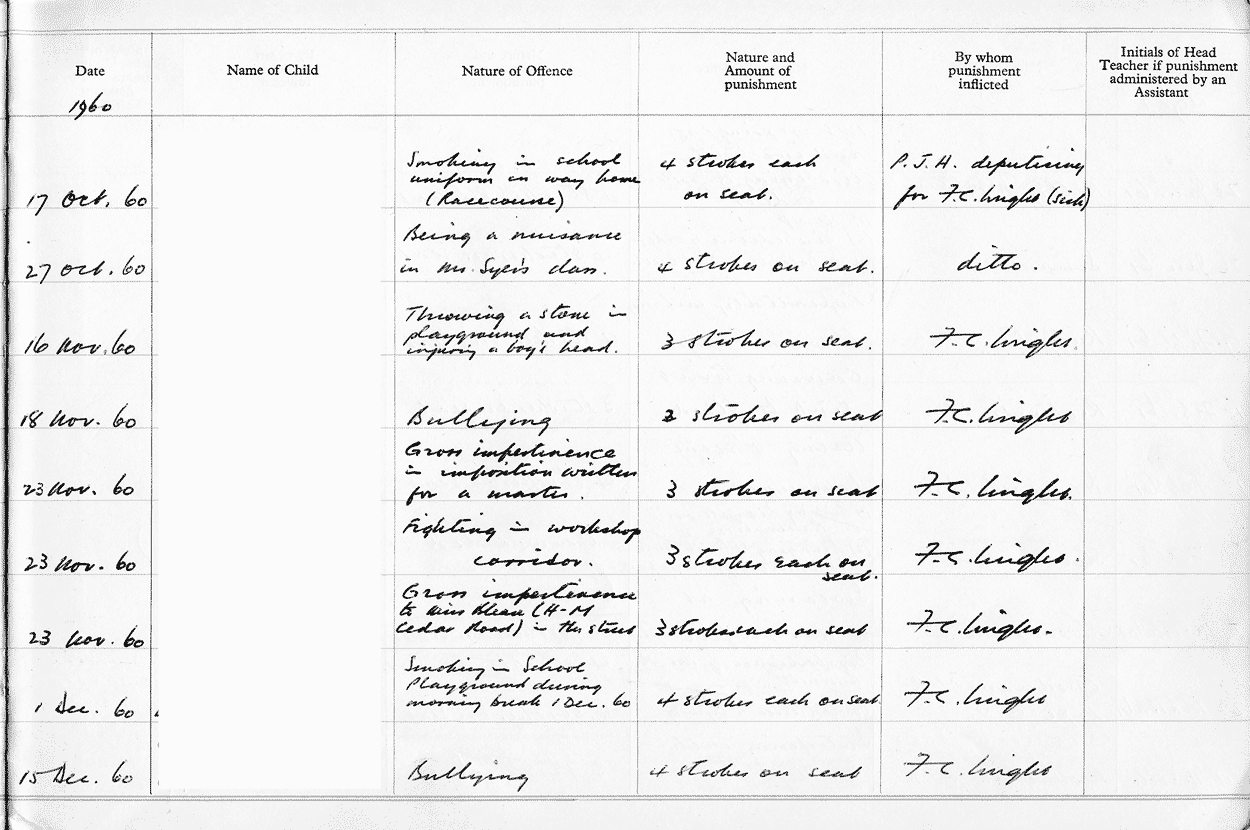 Date
Name of Child
Nature of Offence
Nature and
Amount of
punishment
By whom
punishment
inflicted
Initials of Head
Teacher if punishment
administered by an
Assistant
1960
17 Oct. 60
Smoking in school
uniform on way home
(Racecourse)
4 strokes each
on seat.
P.J.H. deputising
for F.C. (sick)
27 Oct. 60
Being a nuisance
in Mr. class.
4 strokes on seat.
ditto.
16 Nov. 60
Throwing a stone in
playground and
injuring a boy's head.
3 strokes on seat.
F.C.
18 Nov. 60
Bullying
2 strokes on seat
F.C.
23 Nov. 60
Gross impertinence
in imposition written
for a master.
3 strokes on seat
F.C.
23 Nov. 60
Fighting in workshop
corridor.
3 strokes each on
seat.
F.C.
23 Nov. 60
Gross impertinence
to Miss (H-M
Cedar Road) in the street
3 strokes each on seat
F.C.
1 Dec. 60
Smoking in School
Playground during
morning break 1 Dec. 60
4 strokes each on seat
F.C.
15 Dec. 60
Bullying
4 strokes on seat
F.C.